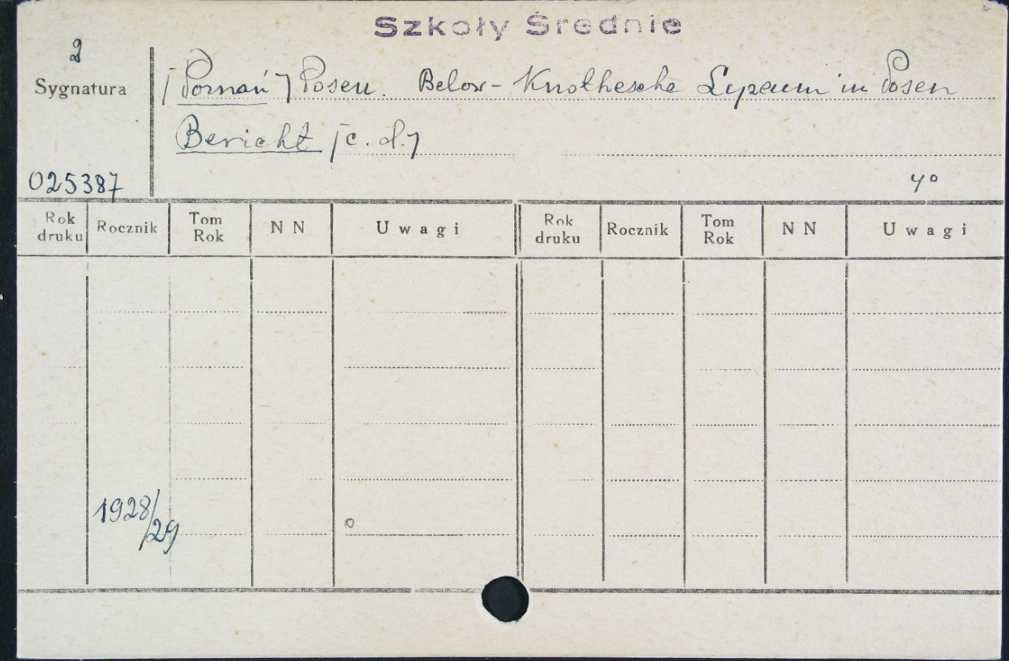 Szkoły Średnie
2
Sygnatura
[Poznań] Posen. Below-Knothesche Lyzeum in Posen
Bericht [c.d.]
025387
4°
Rok druku Rocznik Tom Rok N N Uwagi Rok druku Rocznik Tom Rok N N Uwagi
1928/29 o